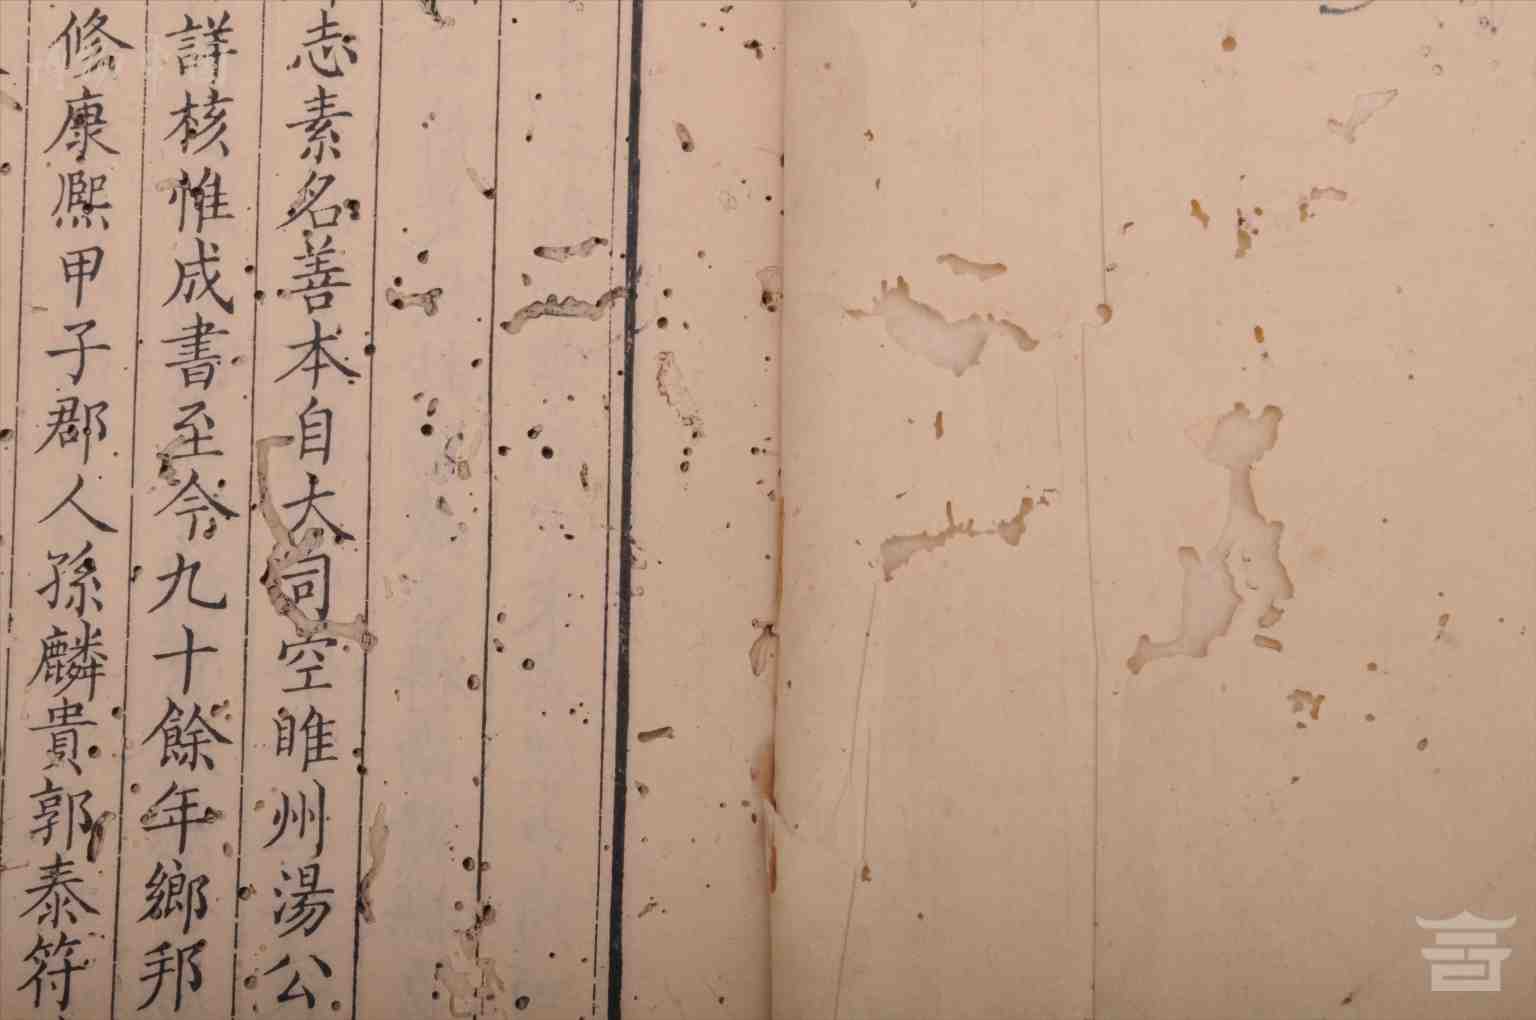 志素名善本自大司空睢州湯公
詳核惟成書至今九十餘年鄉邦
修康熙甲子郡人孫麟貴郭泰符